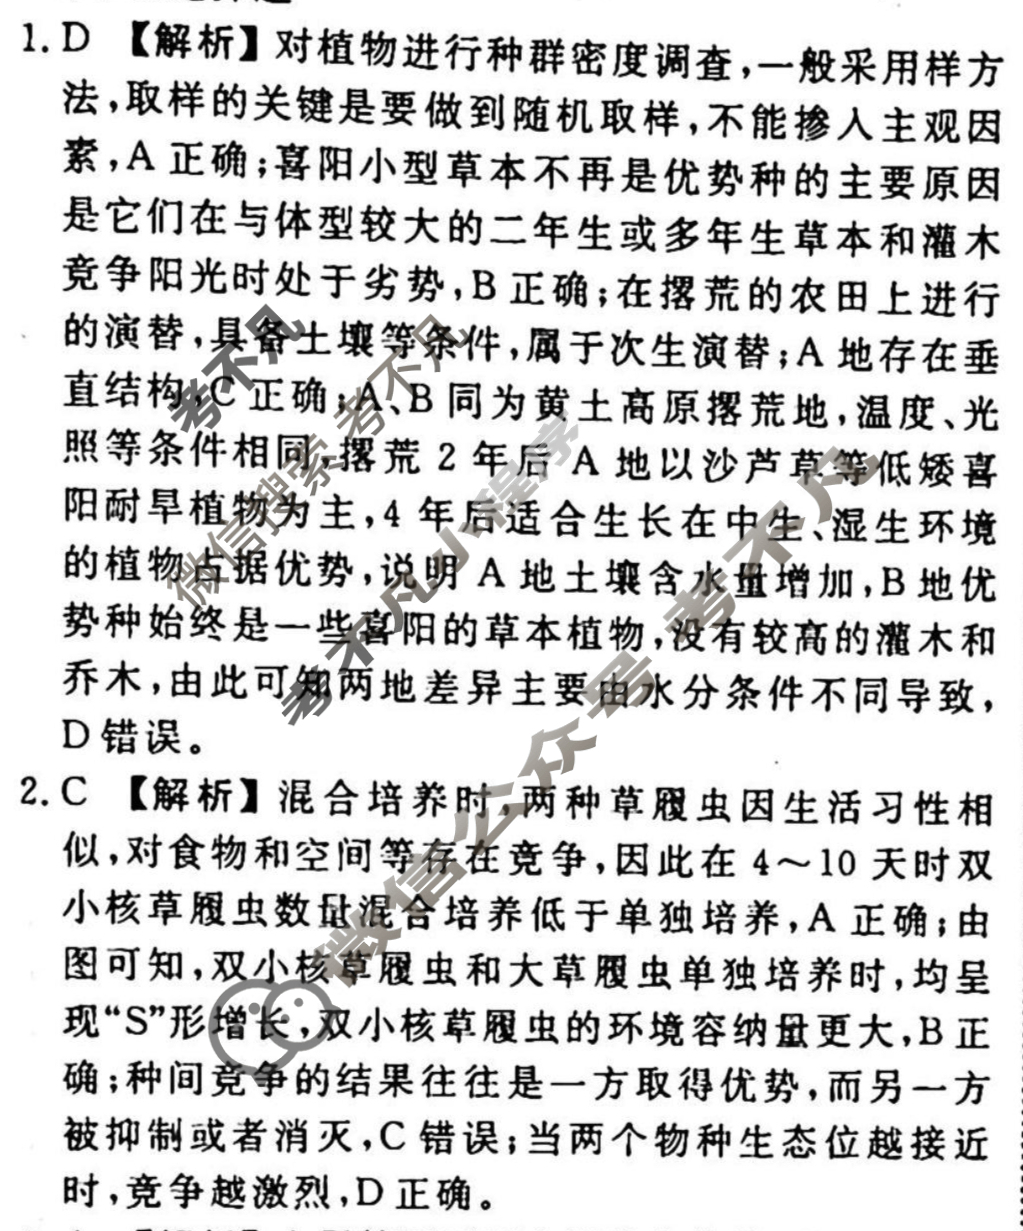 1. D 【解析】对植物进行种群密度调查,一般采用样方
法,取样的关键是要做到随机取样,不能掺入主观因
素,A 正确;喜阳小型草本不再是优势种的主要原因
是它们在与体型较大的二年生或多年生草本和灌木
竞争阳光时处于劣势,B 正确;在撂荒的农田上进行
的演替,具备土壤等条件,属于次生演替;A 地存在垂
直结构,C 正确;A、B 同为黄土高原撂荒地,温度、光
照等条件相同,撂荒 2 年后 A 地以沙芦草等低矮喜
阳耐旱植物为主,4 年后适合生长在中生、湿生环境
的植物占据优势,说明 A 地土壤含水量增加,B 地优
势种始终是一些喜阳的草本植物,没有较高的灌木和
乔木,由此可知两地差异主要由水分条件不同导致,
D 错误。
2. C 【解析】混合培养时,两种草履虫因生活习性相
似,对食物和空间等存在竞争,因此在 4～10 天时双
小核草履虫数量混合培养低于单独培养,A 正确;由
图可知,双小核草履虫和大草履虫单独培养时,均呈
现“S”形增长,双小核草履虫的环境容纳量更大,B 正
确;种间竞争的结果往往是一方取得优势,而另一方
被抑制或者消灭,C 错误;当两个物种生态位越接近
时,竞争越激烈,D 正确。
考不凡
微信搜索 考不凡
考不凡小程序
微信公众号 考不凡